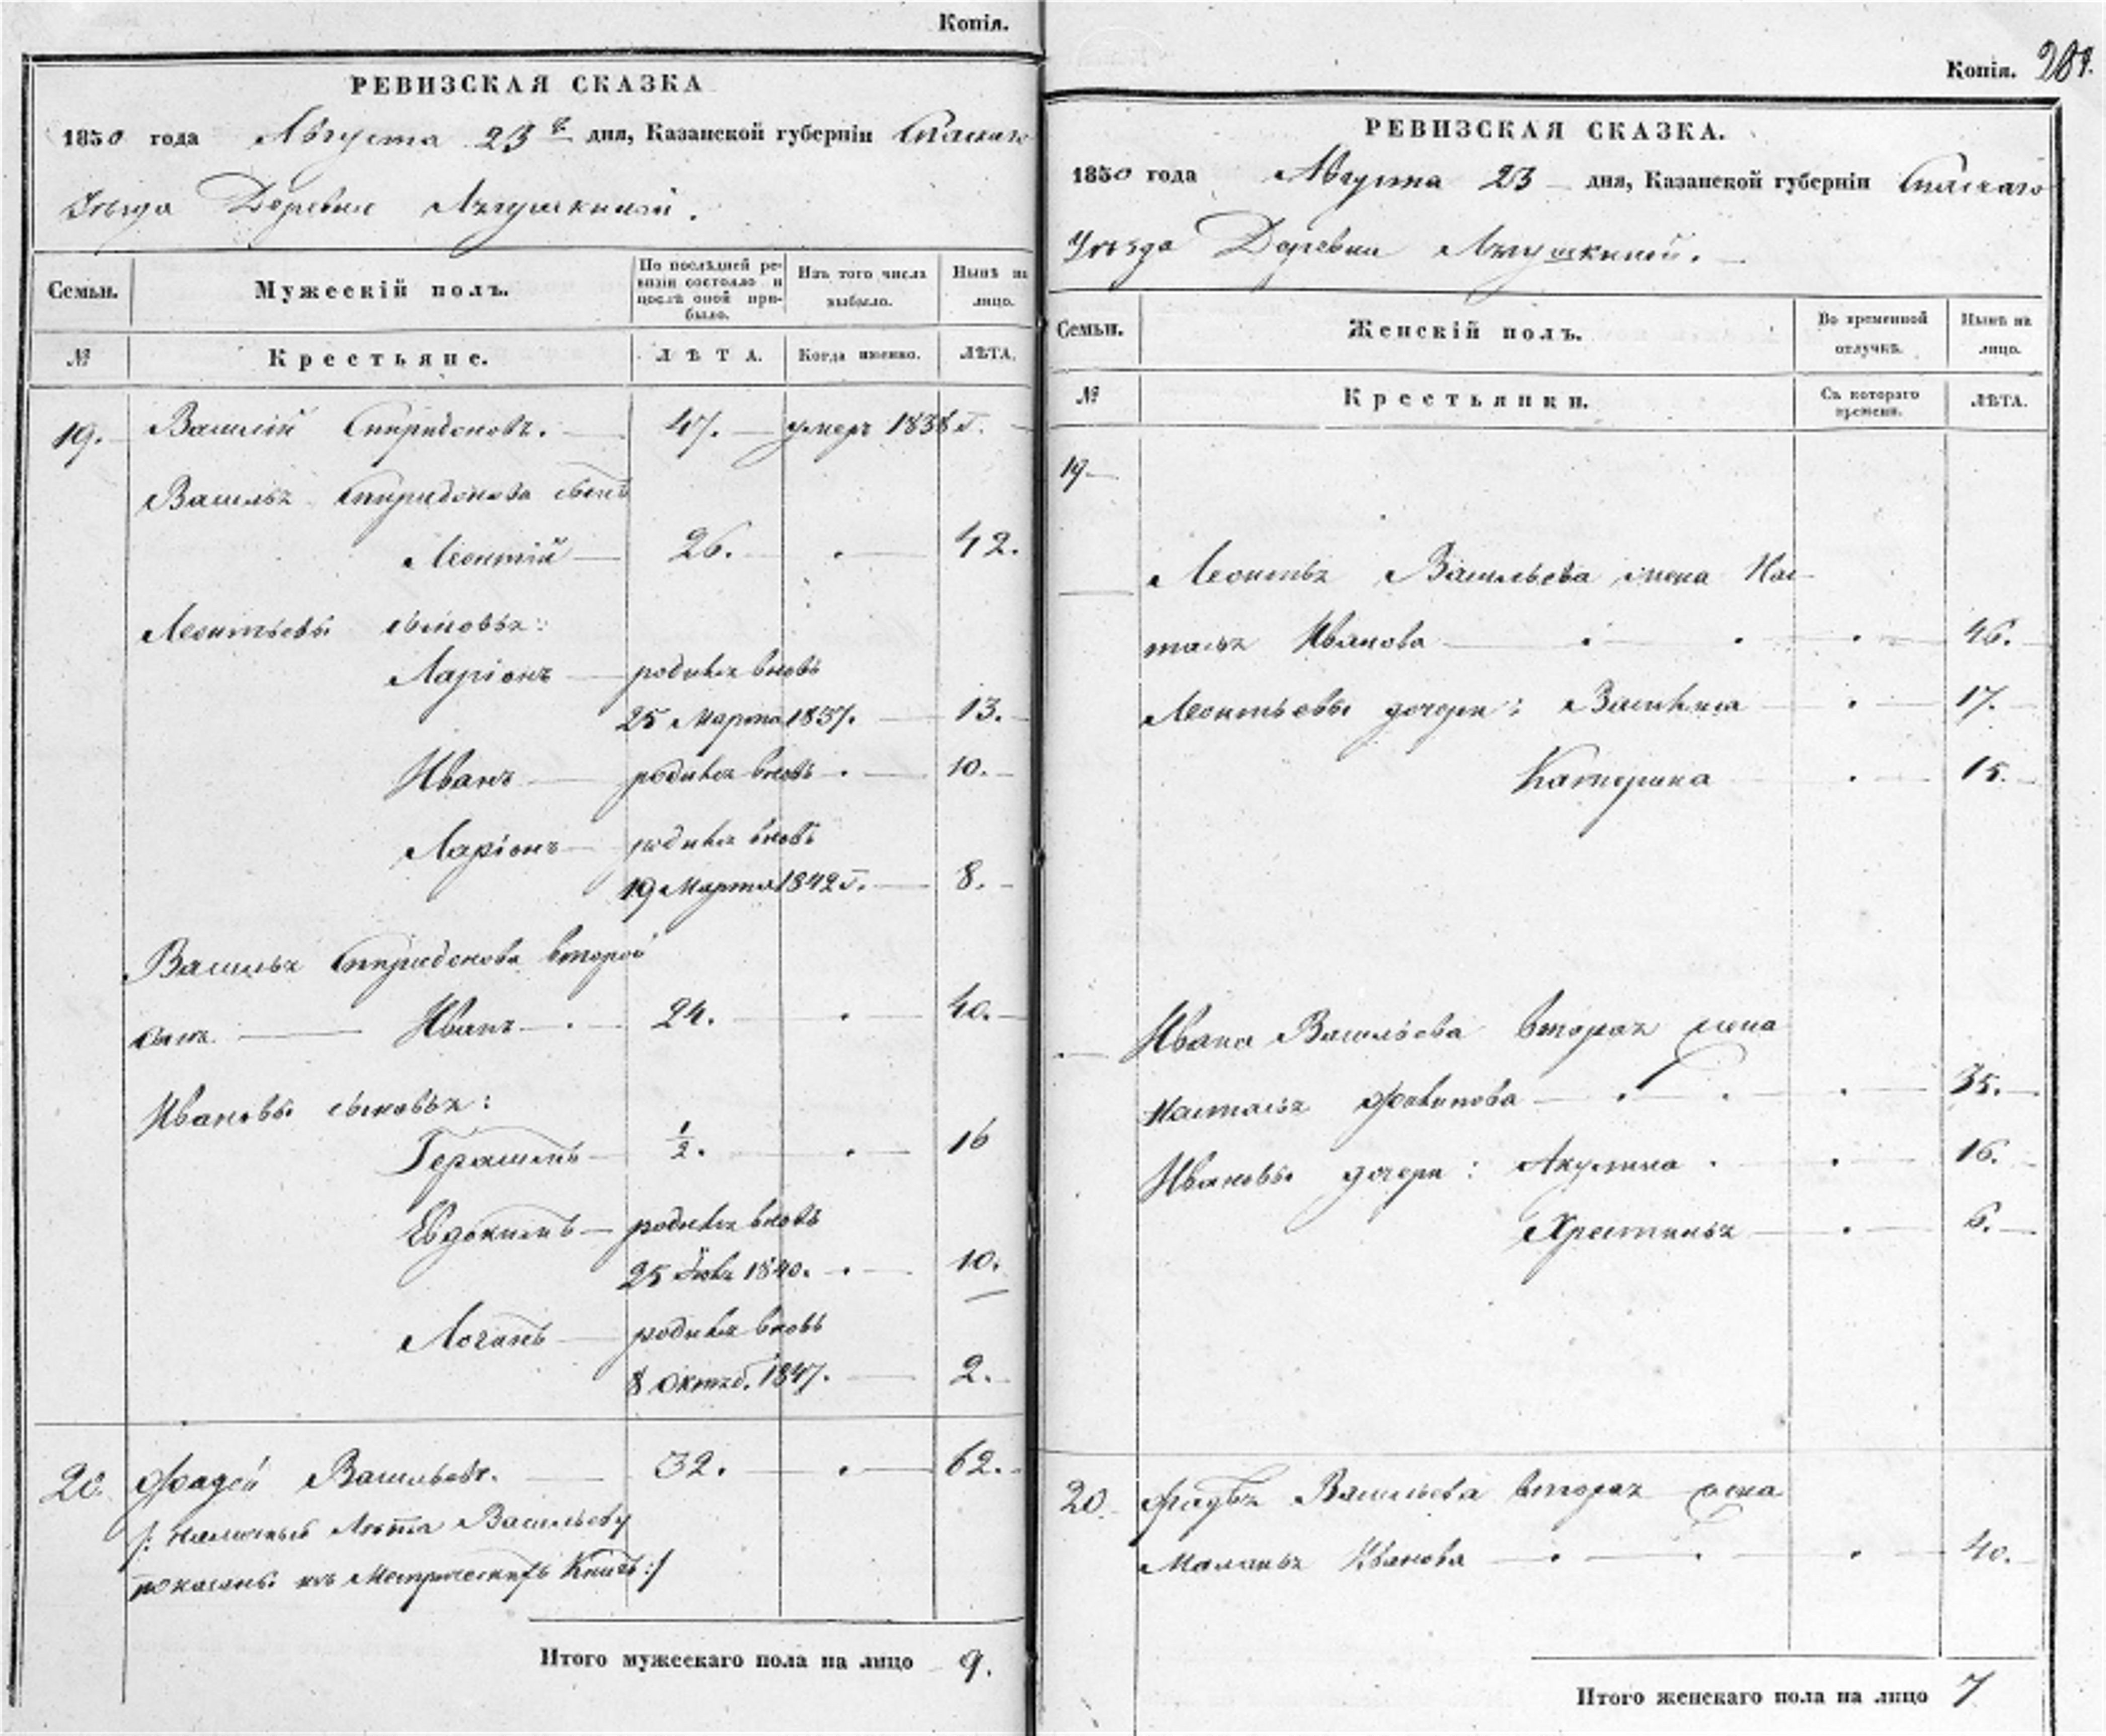 Копія.
РЕВИЗСКАЯ СКАЗКА
1850 года Августа 23 дня, Казанской губерніи Спаскаго
Уѣзда Деревни
Семьи. Мужескій полъ. По послѣдней ревизіи состояло и послѣ оной прибыло. Изъ того числа выбыло. Нынѣ на лицо.
№ Крестьяне. ЛѢТА. Когда именно. ЛѢТА.
19. Василій Спиридоновъ. 47. умеръ 1838 г.
Василья Спиридонова сынъ
Леонтій 26. 42.
Леонтьевы сыновья:
Ларіонъ родился вновь
25 Марта 1837. 13.
Иванъ родился вновь 10.
Ларіонъ родился вновь
19 Марта 1842 г. 8.
Василья Спиридонова второй
сынъ Иванъ 24. 40.
Ивановы сыновья:
Герасимъ ½. 16
Евдокимъ родился вновь
25 1840. 10.
родился вновь
8 Октяб. 1847. 2.
20. Фадей Васильевъ. 32. 62.
/: Наличныя Лѣта Васильеву
показаны изъ Метрическихъ Книгъ :/
Итого мужескаго пола на лицо 9.
Копія. 207.
РЕВИЗСКАЯ СКАЗКА.
1850 года Августа 23 дня, Казанской губерніи Спаскаго
Уѣзда Деревни
Семьи. Женскій полъ. Во временной отлучкѣ. Нынѣ на лицо.
№ Крестьянки. Съ котораго времени. ЛѢТА.
19
Леонтья Васильева жена Нас-
тасья Иванова 46.
Леонтьевы дочери: Василиса 17.
Катерина 15.
Ивана Васильева вторая жена
Настасья Филипова 35.
Ивановы дочери: Акулина 16.
Хрестинья 6.
20. Фадѣя Васильева вторая жена
Маланья Иванова 40.
Итого женскаго пола на лицо 7